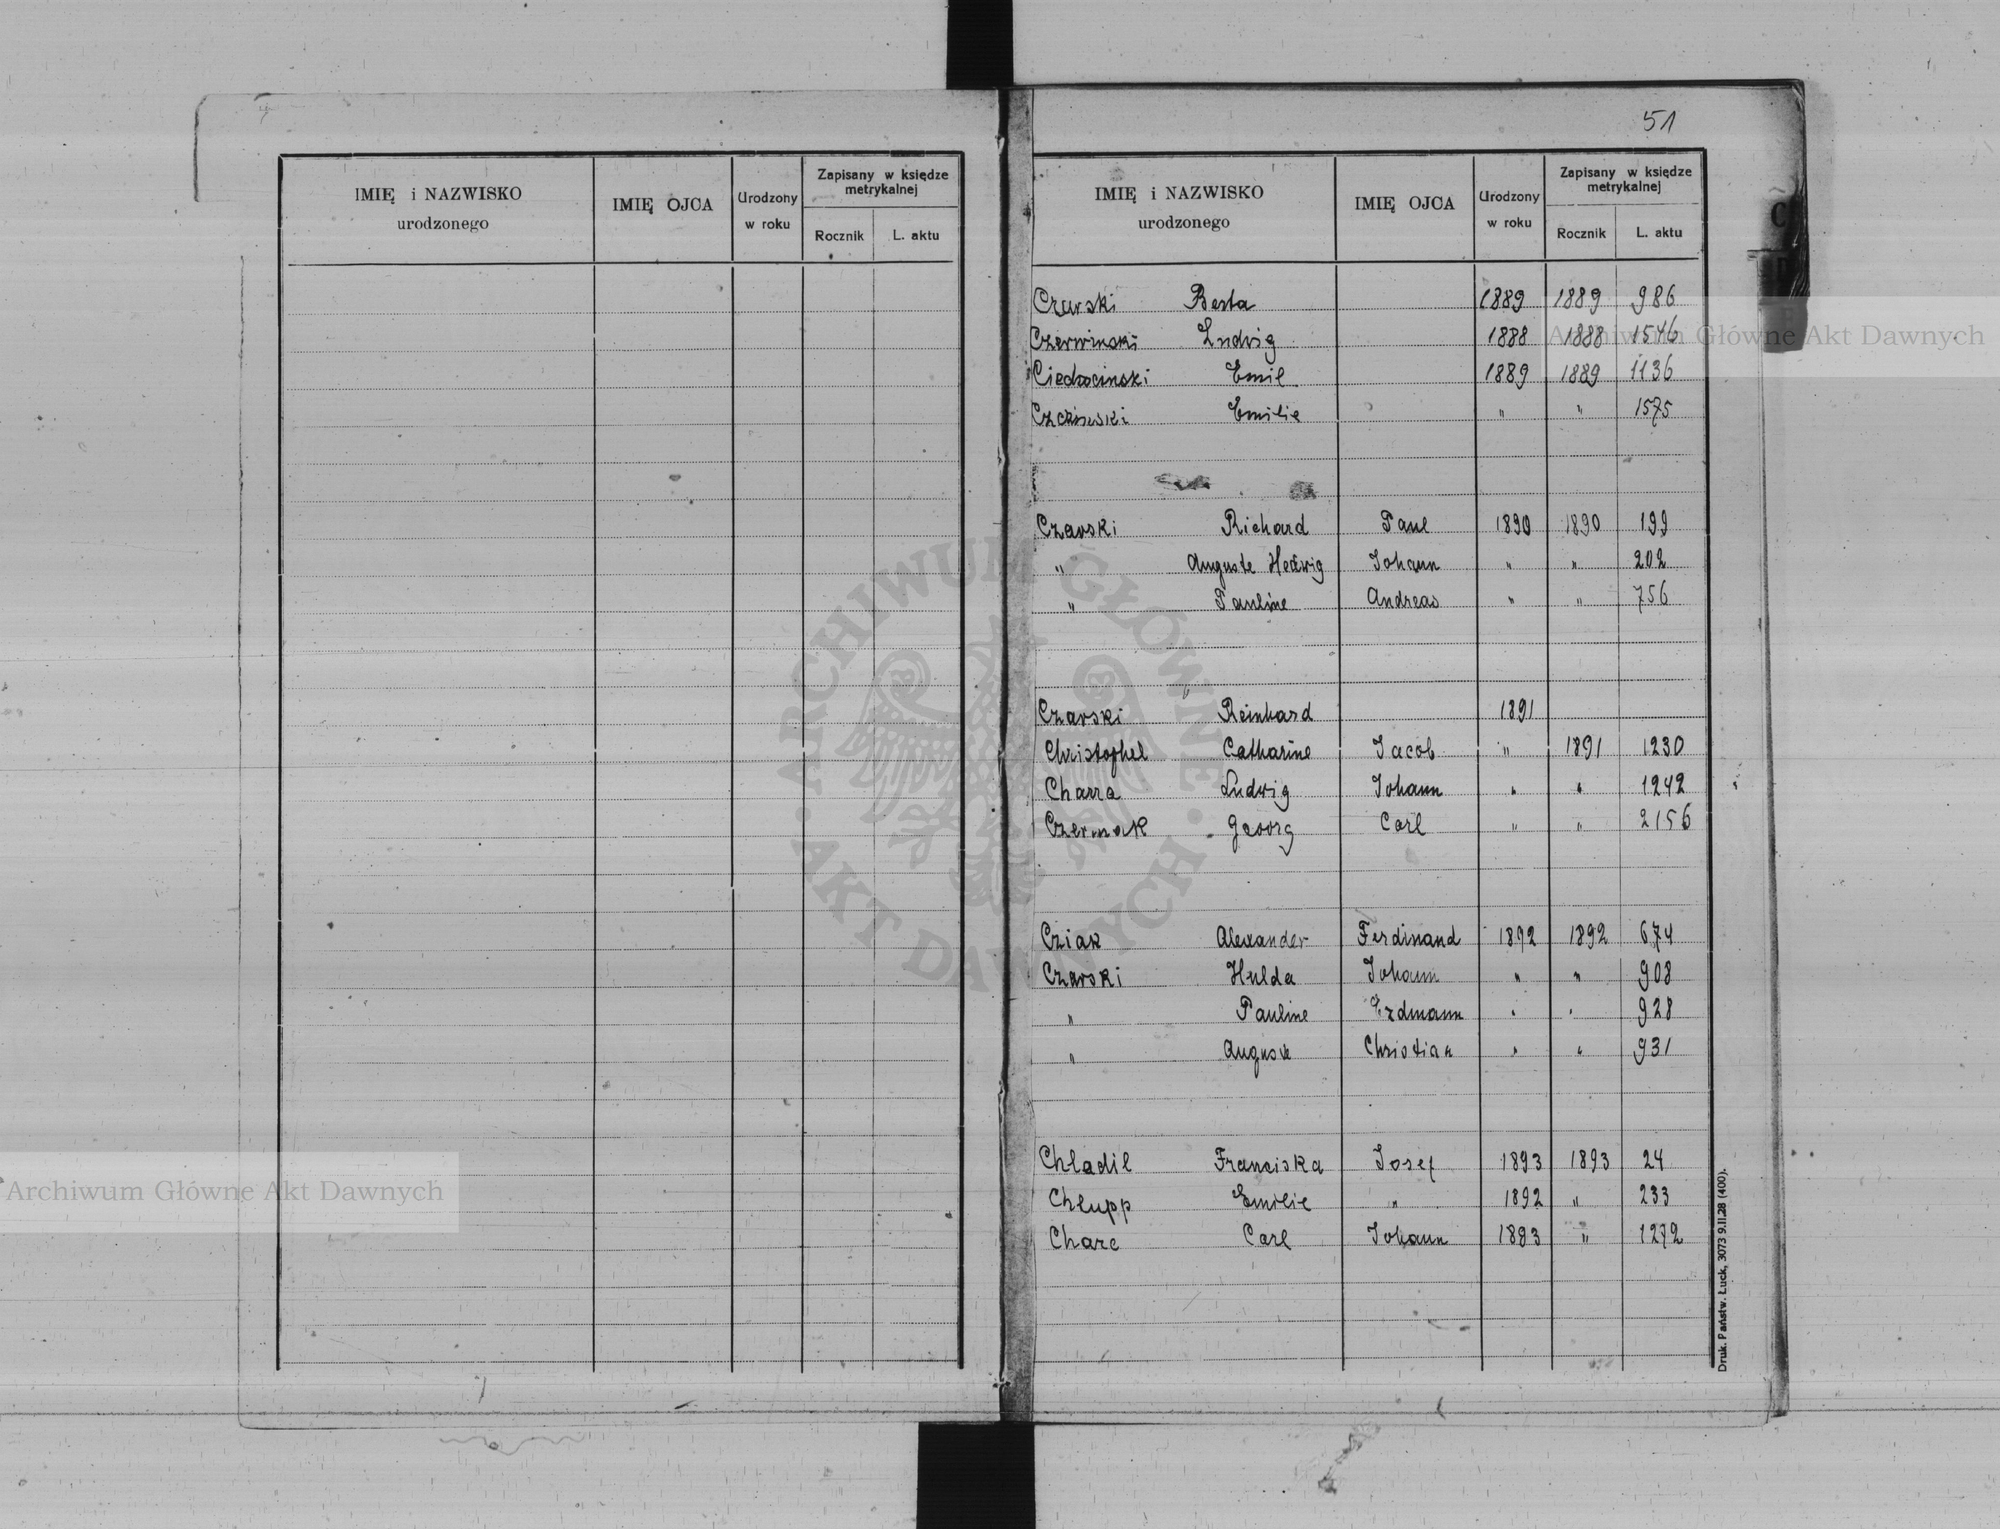 51
IMIĘ i NAZWISKO urodzonego IMIĘ OJCA Urodzony w roku Zapisany w księdze metrykalnej Rocznik L. aktu
IMIĘ i NAZWISKO urodzonego IMIĘ OJCA Urodzony w roku Zapisany w księdze metrykalnej Rocznik L. aktu
Berta 1889 1889 986
Czerwinski Ludwig 1888 1888 1546
Emil 1889 1889 1136
Emilie " " 1575
Czarski Richard Paul 1890 1890 199
" Auguste Hedwig Johann " " 202
" Pauline Andreas " " 756
Czarski Reinhard 1891
Christophel Catharine Jacob " 1891 1230
Charra Ludwig Johann " " 1242
Czermak Georg Carl " " 2156
Cziak Alexander Ferdinand 1892 1892 674
Czarski Hulda Johann " " 908
" Pauline Erdmann " " 928
" Auguste Christian " " 931
Chladil Franciska Josef 1893 1893 24
Chlupp Emilie " 1892 " 233
Charc Carl Johann 1893 " 1272
Druk. Państw. Łuck, 3073 9.II.28 (400).
C
D
Archiwum Główne Akt Dawnych
Archiwum Główne Akt Dawnych
ARCHIWUM GŁÓWNE · AKT DAWNYCH ·